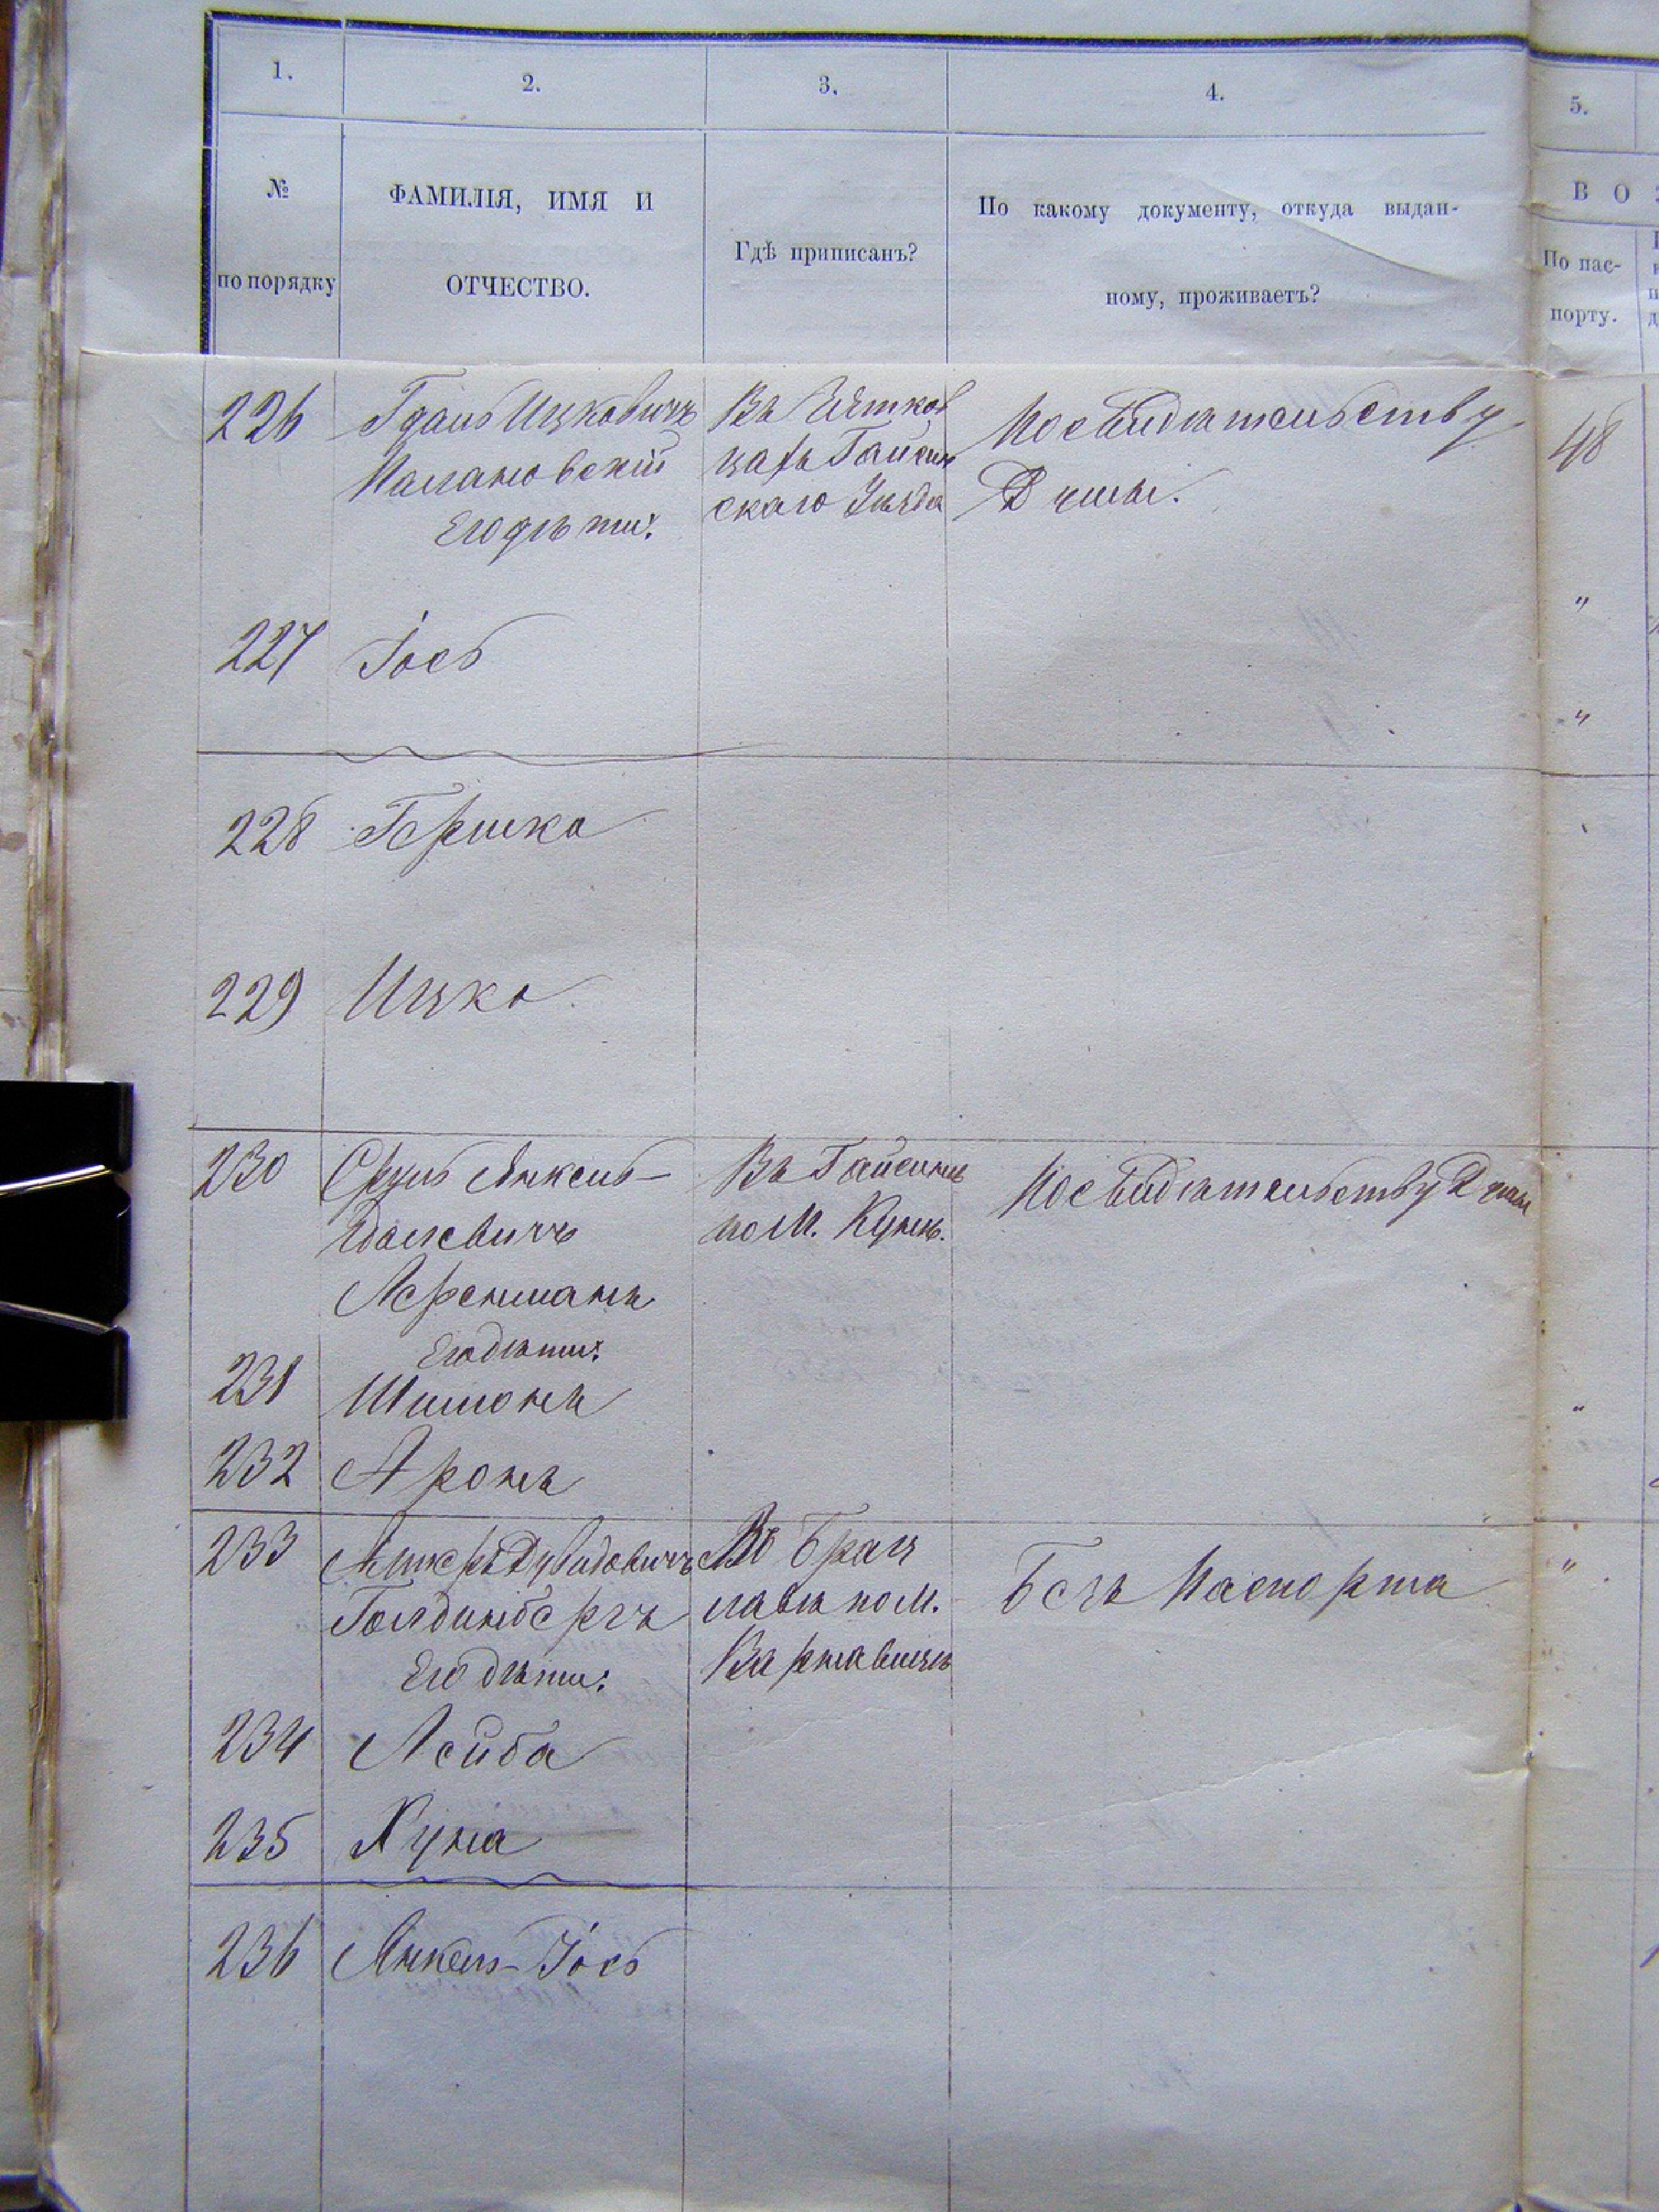 1. 2. 3. 4. 5.
№ по порядку
ФАМИЛІЯ, ИМЯ И
ОТЧЕСТВО.
Гдѣ приписанъ?
По какому документу, откуда выдан-
ному, проживаетъ?
В О
По пас-
порту.
226 Гдаль Ицковичъ
Палановскій
Его дѣти:
Въ
цахъ Гайсин
скаго Уѣзда
По свидѣтельству
Думы.
48
227 Іось
"
"
228 Гершко
229 Ицко
230 Сруль Янкель-
Леренманъ
Его дѣти:
Въ Гайсинѣ
по М. Кунѣ.
По свидѣтельству Думы
231 Шимонъ
"
232 Аронъ
233 Дувидовичъ
Голдинбергъ
Его дѣти:
Въ Брац
лавѣ по М.
Безъ Паспорта
"
234 Лейба
235 Хуна
236 Янкель-Іось